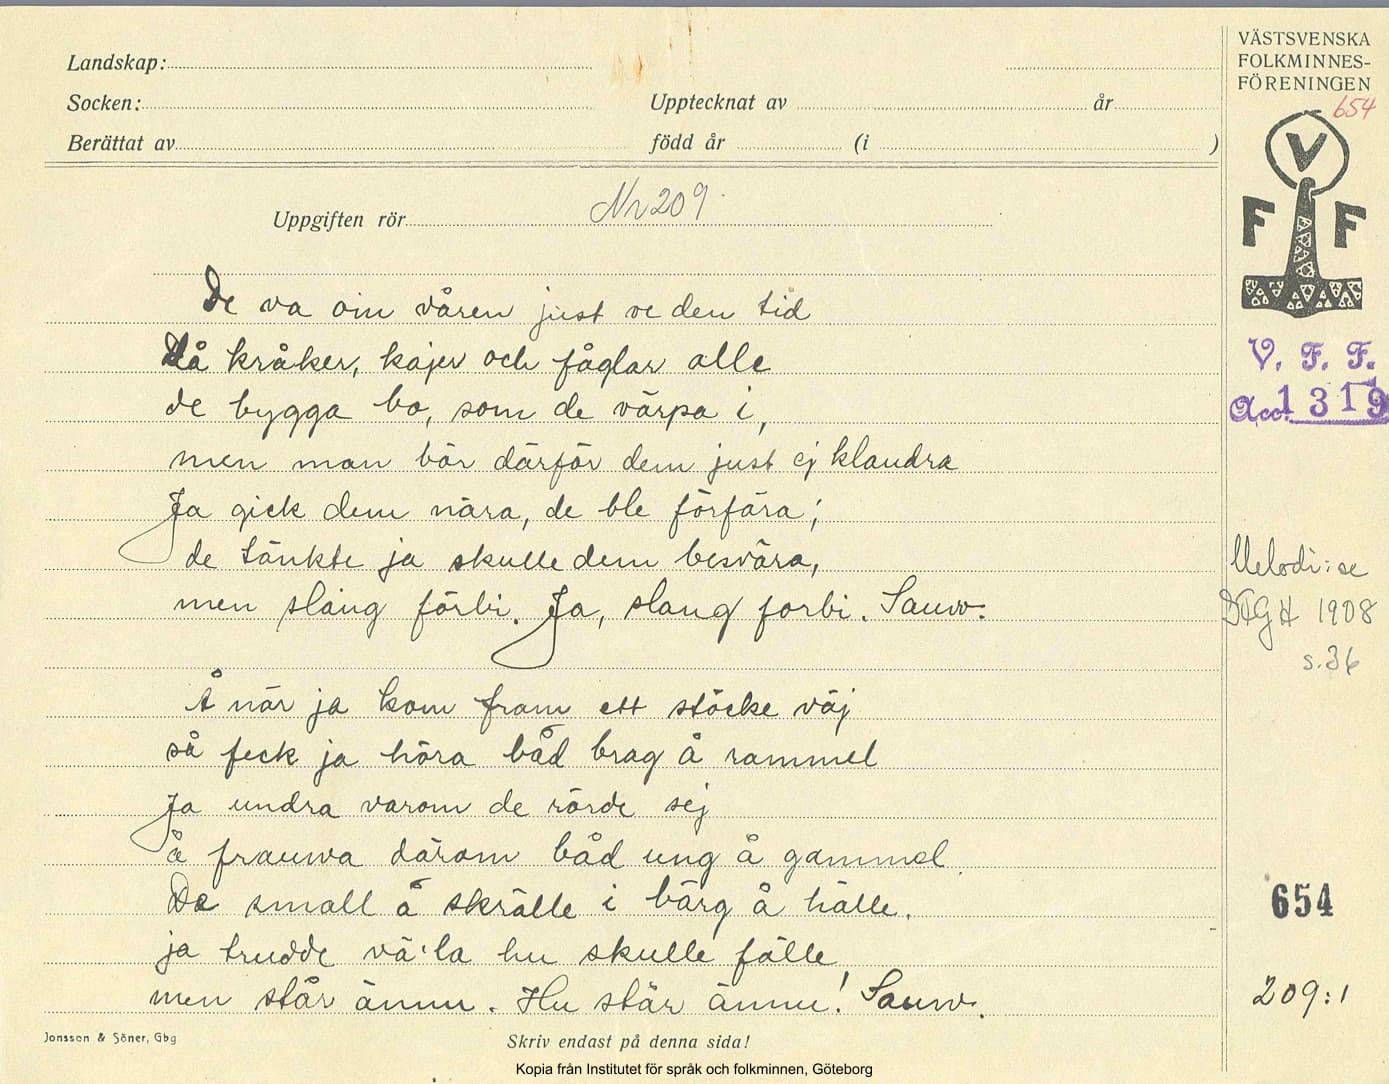 Landskap:
Socken:
Upptecknat av
år
Berättat av
född år
(i
)
VÄSTSVENSKA
FOLKMINNES-
FÖRENINGEN
654
V
F F
V. F. F.
Acc. 1319
Uppgiften rör
Nr 209.
De va oin våren just ve den tid
Då kråker, kajer och fåglar alle
de bygga bo, som de värpa i,
men man bör därför dem just ej klandra
Ja gick dem nära, de ble förfära;
de tänkte ja skulle dem besvära,
men slang förbi. Ja, slang forbi. Sauw.
Å när ja kom fram ett stöcke väj
så feck ja höra båd brag å rammel
Ja undra varom de rörde sej
å frauwa därom båd ung å gammel
De small å skrälle i bärg å hälle.
ja trudde vä'la hu skulle fälle
men står ännu. Hu står ännu! Sauw.
Melodi: se
1908
s. 36
654
209:1
Jonsson & Söner, Gbg
Skriv endast på denna sida!
Kopia från Institutet för språk och folkminnen, Göteborg